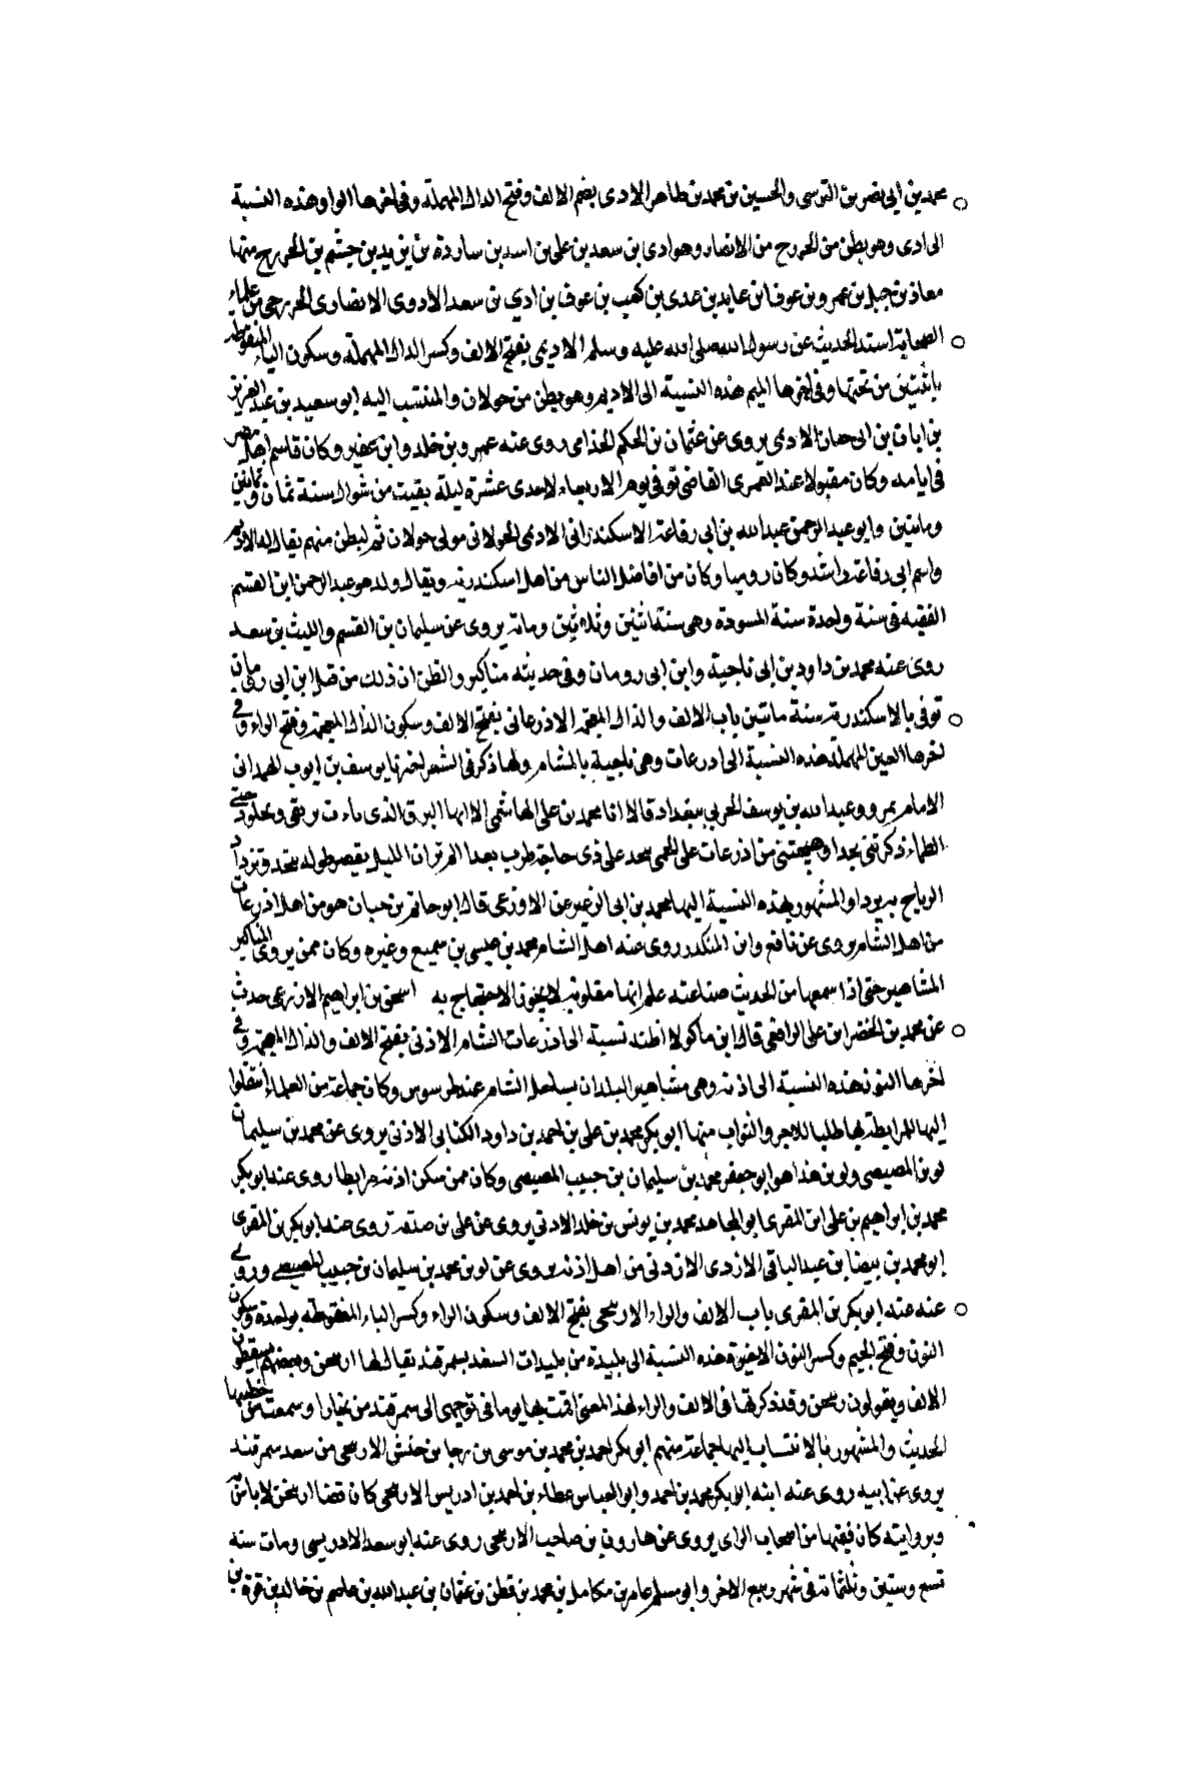 محمد بن ابى نصر بن النرسى والحسين بن محمد بن طاهر الادى بضم الالف وفتح الدال المهملة وفى اخرها الواو هذه النسبة
الى ادى وهو بطن من الخزرج من الانصار وهو ادى بن سعد بن على بن اسد بن ساردة بن يزيد بن جشم بن الخزرج منها
معاذ بن جبل بن عمرو بن عوف ابن عايد بن عدى بن كعب بن عوف بن ادى بن سعد الادوى الانصارى الخزرجى من علماء
الصحابة اسند الحديث عن رسول الله صلى الله عليه وسلم الاديمى بفتح الالف وكسر الدال المهملة وسكون الياء المنقوطة
باثنتين من تحتها وفى اخرها الميم هذه النسبة الى الاديم وهو بطن من خولان والمنتسب اليه ابو سعيد بن عبد العزيز
بن ابان بن ابى حيان الادمى يروى عن عثمان بن الحكم الجذامى روى عنه عمرو بن خلد وابن عفير وكان قاسم اهل مصر
فى ايامه وكان مقبولا عند العمرى القاضى توفى يوم الاربعاء لاحدى عشرة ليلة بقيت من شوال سنة ثمان وثمانين
ومايتين وابو عبد الرحمن عبد الله بن ابى رفاعة الاسكندرانى الادمى الخولانى مولى خولان ثم لبطن منهم يقال له الاديم
واسم ابى رفاعة راشد وكان روميا وكان من افاضل الناس من اهل اسكندرية ويقال ولد هو عبد الرحمن ابن القسم
الفقيه فى سنة واحدة سنة المسودة وهى سنة اثنين وثلاثين وماية يروى عن سليمان بن القسم والليث بن سعد
روى عنه محمد بن داود بن ابى ناجية وابن ابى رومان وفى حديثه مناكير والظن ان ذلك من قبل ابن ابى رومان
توفى بالاسكندرية سنة مائتين باب الالف والذال المعجمة الاذرعانى بفتح الالف وسكون الذال المعجمة وفتح الراء وفى
اخرها العين المهملة هذه النسبة الى اذرعات وهى ناحية بالشام ولها ذكر فى الشعر اخبرنا يوسف بن ايوب الهمدانى
الامام بمرو وعبد الله بن يوسف الحربى ببغداد قالا انا محمد بن على الهاشمى الا ايها البرق الذى بات يرتقى ويجلو دجى
الظلماء ذكرتنى نجدا وهيجتنى من اذرعات على ذى حاجة طرب بعدا الم تر ان الليل يقصر طوله بنجد وتزداد
الرياح به بردا والمشهور بهذه النسبة اليها محمد بن ابى الزعيزعة الاذرعى قال ابو حاتم بن حبان هو من اهل اذرعات
من اهل الشام يروى عن نافع وابن المنكدر روى عنه اهل الشام محمد بن عيسى بن سميع وغيره وكان ممن يروى المناكير
المشاهير حتى اذا سمعها من الحديث صناعته علم انها مقلوبة لا يجوز الاحتجاج به اسحق بن ابراهيم الاذرعى حدث
عن محمد بن الخضر ابن على الرافقى قال ابن ماكولا اظنه نسبة الى اذرعات الشام الاذنى بفتح الالف والذال المعجمة وفى
اخرها النون هذه النسبة الى اذنة وهى مشاهير البلدان بساحل الشام عند طرسوس وكان جماعة من العلماء انتقلوا
اليها للمرابطة بها طلبا للاجر والثواب منها ابو بكر محمد بن على بن احمد بن داود الكتانى الاذنى يروى عن محمد بن سليمان
لوين المصيصى ولوين هذا هو ابو جعفر محمد بن سليمان بن حبيب المصيصى وكان ممن سكن اذنة مرابطا روى عنه ابو بكر
محمد بن ابراهيم بن على ابن المقرى ابو المجاهد محمد بن يونس بن خلد الاذنى يروى عن على بن صدقة روى عنه ابو بكر بن المقرى
ابو محمد بن بيضا بن عبد الباقى الازدى الاذنى من اهل اذنة يروى عن لوين محمد بن سليمان بن حبيب المصيصى وروى
عنه عنه ابو بكر بن المقرى باب الالف والراء الاربنجى بفتح الالف وسكون الراء وكسر الباء المنقوطة بواحدة وسكون
النون وفتح الجيم وكسر النون الاخيرة هذه النسبة الى بليدة من بليدات السغد بسمرقند يقال لها اربنجن وبعضهم يسقطون
الالف ويقولون ربنجن وقد ذكرتها فى الالف والراء لهذا المعنى اقمت بها يوما فى توجهى الى سمرقند من بخارا وسمعت من خطيبها
الحديث والمشهور بالانتساب اليها جماعة منهم ابو بكر احمد بن محمد بن موسى بن رجا بن حنش الاربنجى من سغد سمرقند
يروى عن ابيه روى عنه ابنه ابو بكر محمد بن احمد وابو العباس عطاء بن احمد بن ادريس الاربنجى كان قضا اربنجن لاباس به
وبروايته كان فقيها من اصحاب الراى يروى عن هارون بن صاحب الاربنجى روى عنه ابو سعد الادريسى ومات سنة
تسع وستين وثلثماية فى شهر ربيع الاخر وابو مسلم عامر بن مكامل بن محمد بن قطن بن عثمان بن عبد الله بن عاصم بن خالد بن قرة بن